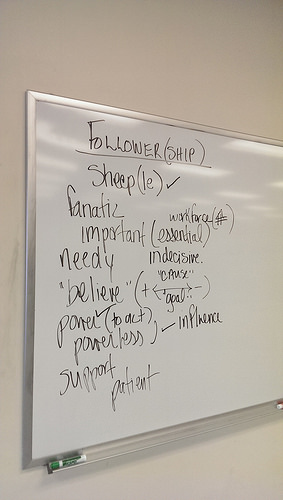 FOLLOWER(SHIP)
Sheep(le) ✓
fanatic
workforce(#)
important (essential)
needy indecisive.
"cause"
"believe" (+ ⟷ -)
"goal"
power (to act),
powerless; ✓ influence
support
patient